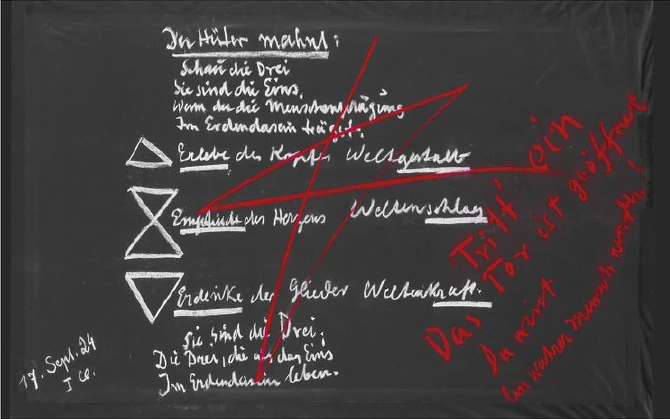 Der Hüter mahnt:
Schau die Drei
Sie sind die Eins,
Wenn du die Menschenprägung
Im Erdendasein trägst.
Erlebe des Kopfes Weltgestalt
Empfinde des Herzens Weltenschlag
Erdenke der Glieder Weltenkraft.
Sie sind die Drei.
Die Drei, die als das Eins
Im Erdendasein leben.
17. Sept. 24
Tritt ein
Das Tor ist geöffnet
Du wirst
Ein wahrer Mensch werden!